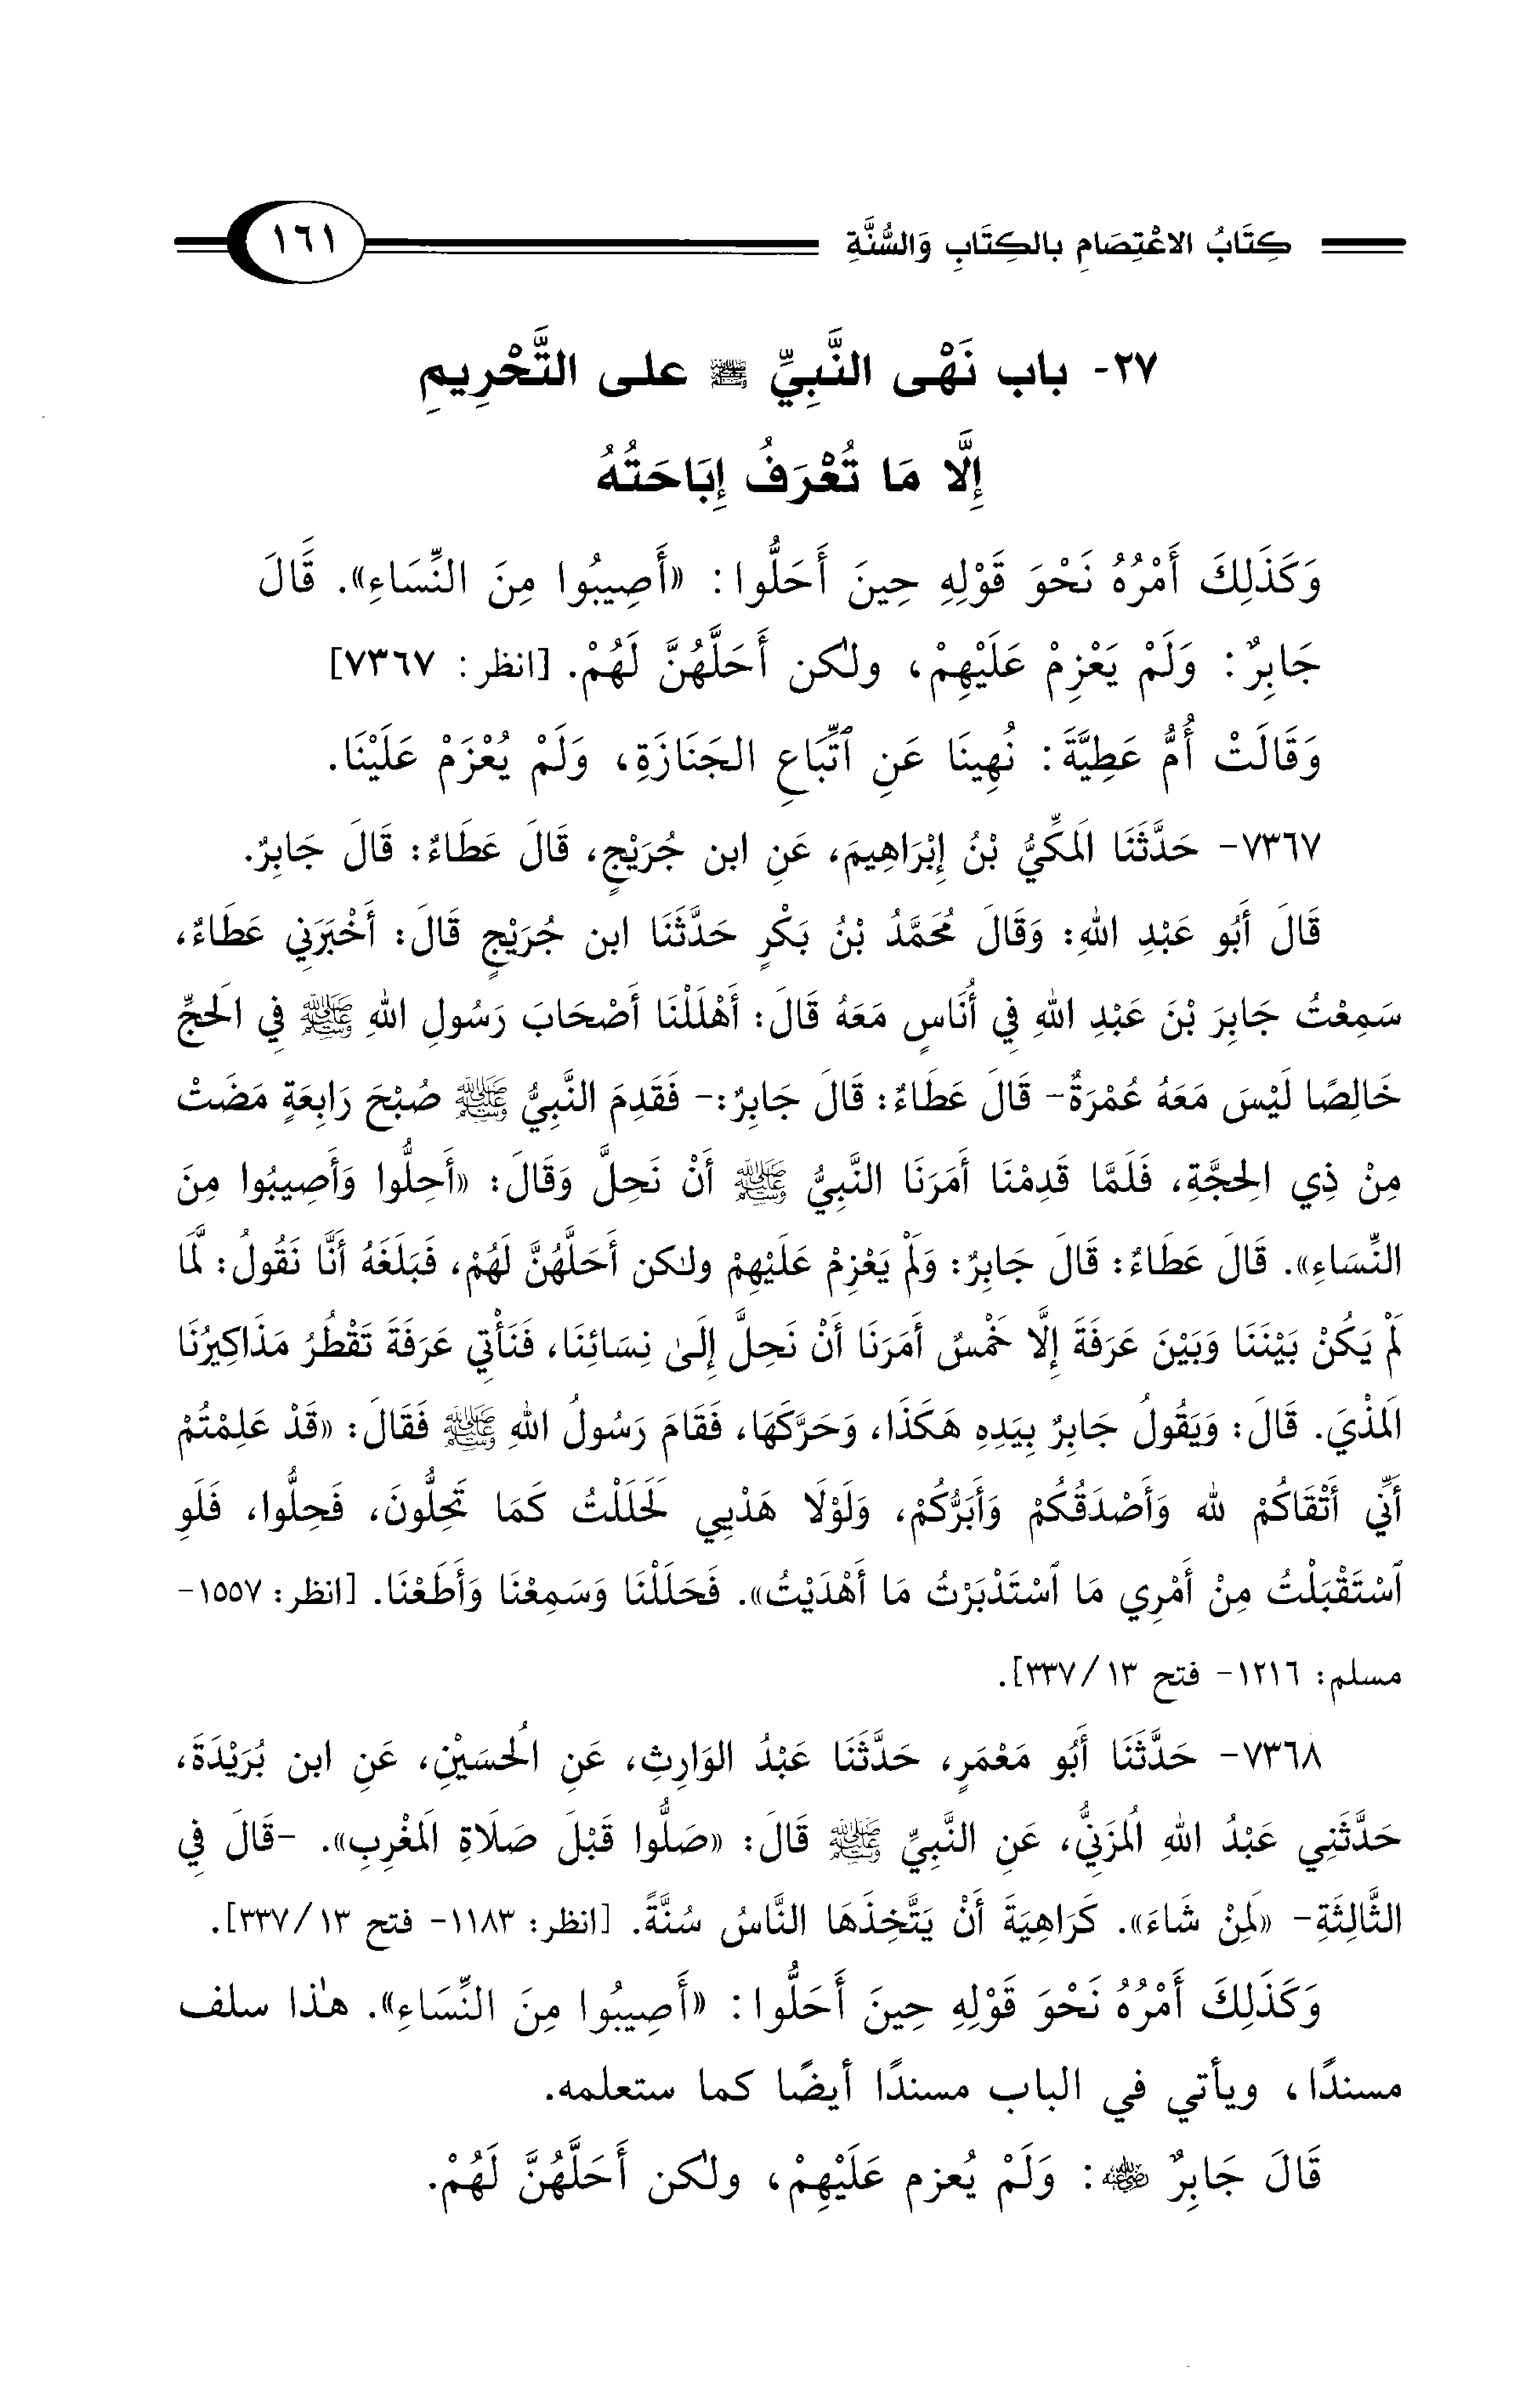 كِتَابُ الاعْتِصَامِ بالكِتَابِ وَالسُّنَّةِ ١٦١
٢٧- باب نَهْى النَّبِيِّ ﷺ على التَّحْرِيمِ
إِلَّا مَا تُعْرَفُ إِبَاحَتُهُ
وَكَذَلِكَ أَمْرُهُ نَحْوَ قَوْلِهِ حِينَ أَحَلُّوا: «أَصِيبُوا مِنَ النِّسَاءِ». قََالَ
جَابِرٌ: وَلَمْ يَعْزِمْ عَلَيْهِمْ، ولكن أَحَلَّهُنَّ لَهُمْ. [انظر: ٧٣٦٧]
وَقَالَتْ أُمُّ عَطِيَّةَ: نُهِينَا عَنِ ٱتِّبَاعِ الجَنَازَةِ، وَلَمْ يُعْزَمْ عَلَيْنَا.
٧٣٦٧- حَدَّثَنَا المَكِّيُّ بْنُ إِبْرَاهِيمَ، عَنِ ابن جُرَيْجٍ، قَالَ عَطَاءٌ: قَالَ جَابِرٌ.
قَالَ أَبُو عَبْدِ اللهِ: وَقَالَ مُحَمَّدُ بْنُ بَكْرٍ حَدَّثَنَا ابن جُرَيْجٍ قَالَ: أَخْبَرَنِي عَطَاءٌ،
سَمِعْتُ جَابِرَ بْنَ عَبْدِ اللهِ فِي أُنَاسٍ مَعَهُ قَالَ: أَهْلَلْنَا أَصْحَابَ رَسُولِ اللهِ ﷺ فِي الَحجِّ
خَالِصًا لَيْسَ مَعَهُ عُمْرَةٌ- قَالَ عَطَاءٌ: قَالَ جَابِرٌ:- فَقَدِمَ النَّبِيُّ ﷺ صُبْحَ رَابِعَةٍ مَضَتْ
مِنْ ذِي الِحجَّةِ، فَلَمَّا قَدِمْنَا أَمَرَنَا النَّبِيُّ ﷺ أَنْ نَحِلَّ وَقَالَ: «أَحِلُّوا وَأَصِيبُوا مِنَ
النِّسَاءِ». قَالَ عَطَاءٌ: قَالَ جَابِرٌ: وَلَمْ يَعْزِمْ عَلَيْهِمْ ولكن أَحَلَّهُنَّ لَهُمْ، فَبَلَغَهُ أَنَّا نَقُولُ: لَّمَا
لَمْ يَكُنْ بَيْنَنَا وَبَيْنَ عَرَفَةَ إِلَّا خَمْسٌ أَمَرَنَا أَنْ نَحِلَّ إِلَىٰ نِسَائِنَا، فَنَأْتِي عَرَفَةَ تَقْطُرُ مَذَاكِيرُنَا
الَمذْيَ. قَالَ: وَيَقُولُ جَابِرٌ بِيَدِهِ هَكَذَا، وَحَرَّكَهَا، فَقَامَ رَسُولُ اللهِ ﷺ فَقَالَ: «قَدْ عَلِمْتُمْ
أَنِّي أَتْقَاكُمْ لله وَأَصْدَقُكُمْ وَأَبَرُّكُمْ، وَلَوْلَا هَدْيِي لَحَلَلْتُ كَمَا تَحِلُّونَ، فَحِلُّوا، فَلَوِ
ٱسْتَقْبَلْتُ مِنْ أَمْرِي مَا ٱسْتَدْبَرْتُ مَا أَهْدَيْتُ». فَحَلَلْنَا وَسَمِعْنَا وَأَطَعْنَا. [انظر: ١٥٥٧-
مسلم: ١٢١٦- فتح ١٣/ ٣٣٧].
٧٣٦٨- حَدَّثَنَا أَبُو مَعْمَرٍ، حَدَّثَنَا عَبْدُ الوَارِثِ، عَنِ الُحسَيْنِ، عَنِ ابن بُرَيْدَةَ،
حَدَّثَنِي عَبْدُ اللهِ الُمزَنِيُّ، عَنِ النَّبِيِّ ﷺ قَالَ: «صَلُّوا قَبْلَ صَلَاةِ الَمغْرِبِ». -قَالَ فِي
الثَّالِثَةِ- «لَمِنْ شَاءَ». كَرَاهِيَةَ أَنْ يَتَّخِذَهَا النَّاسُ سُنَّةً. [انظر: ١١٨٣- فتح ١٣/ ٣٣٧].
وَكَذَلِكَ أَمْرُهُ نَحْوَ قَوْلِهِ حِينَ أَحَلُّوا: «أَصِيبُوا مِنَ النِّسَاءِ». هذا سلف
مسندًا، ويأتي في الباب مسندًا أيضًا كما ستعلمه.
قَالَ جَابِرٌ رضي الله عنه: وَلَمْ يُعزم عَلَيْهِمْ، ولكن أَحَلَّهُنَّ لَهُمْ.